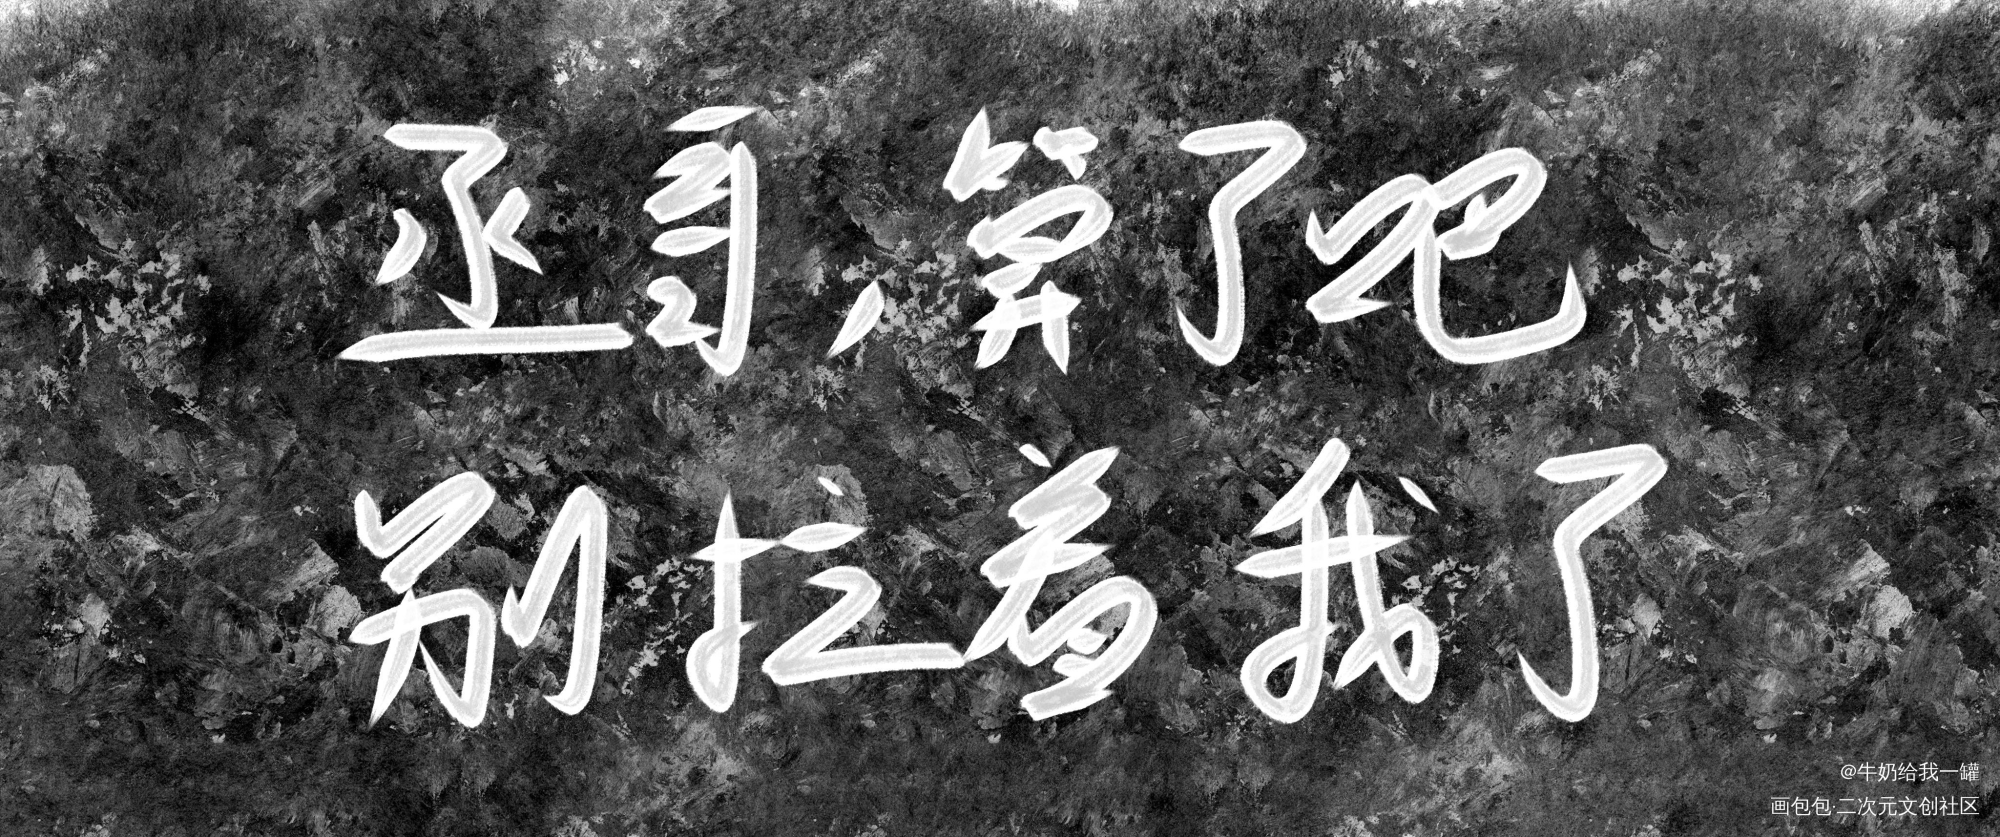 丞哥，算了吧
别拉着我了
@牛奶给我一罐
画包包·二次元文创社区